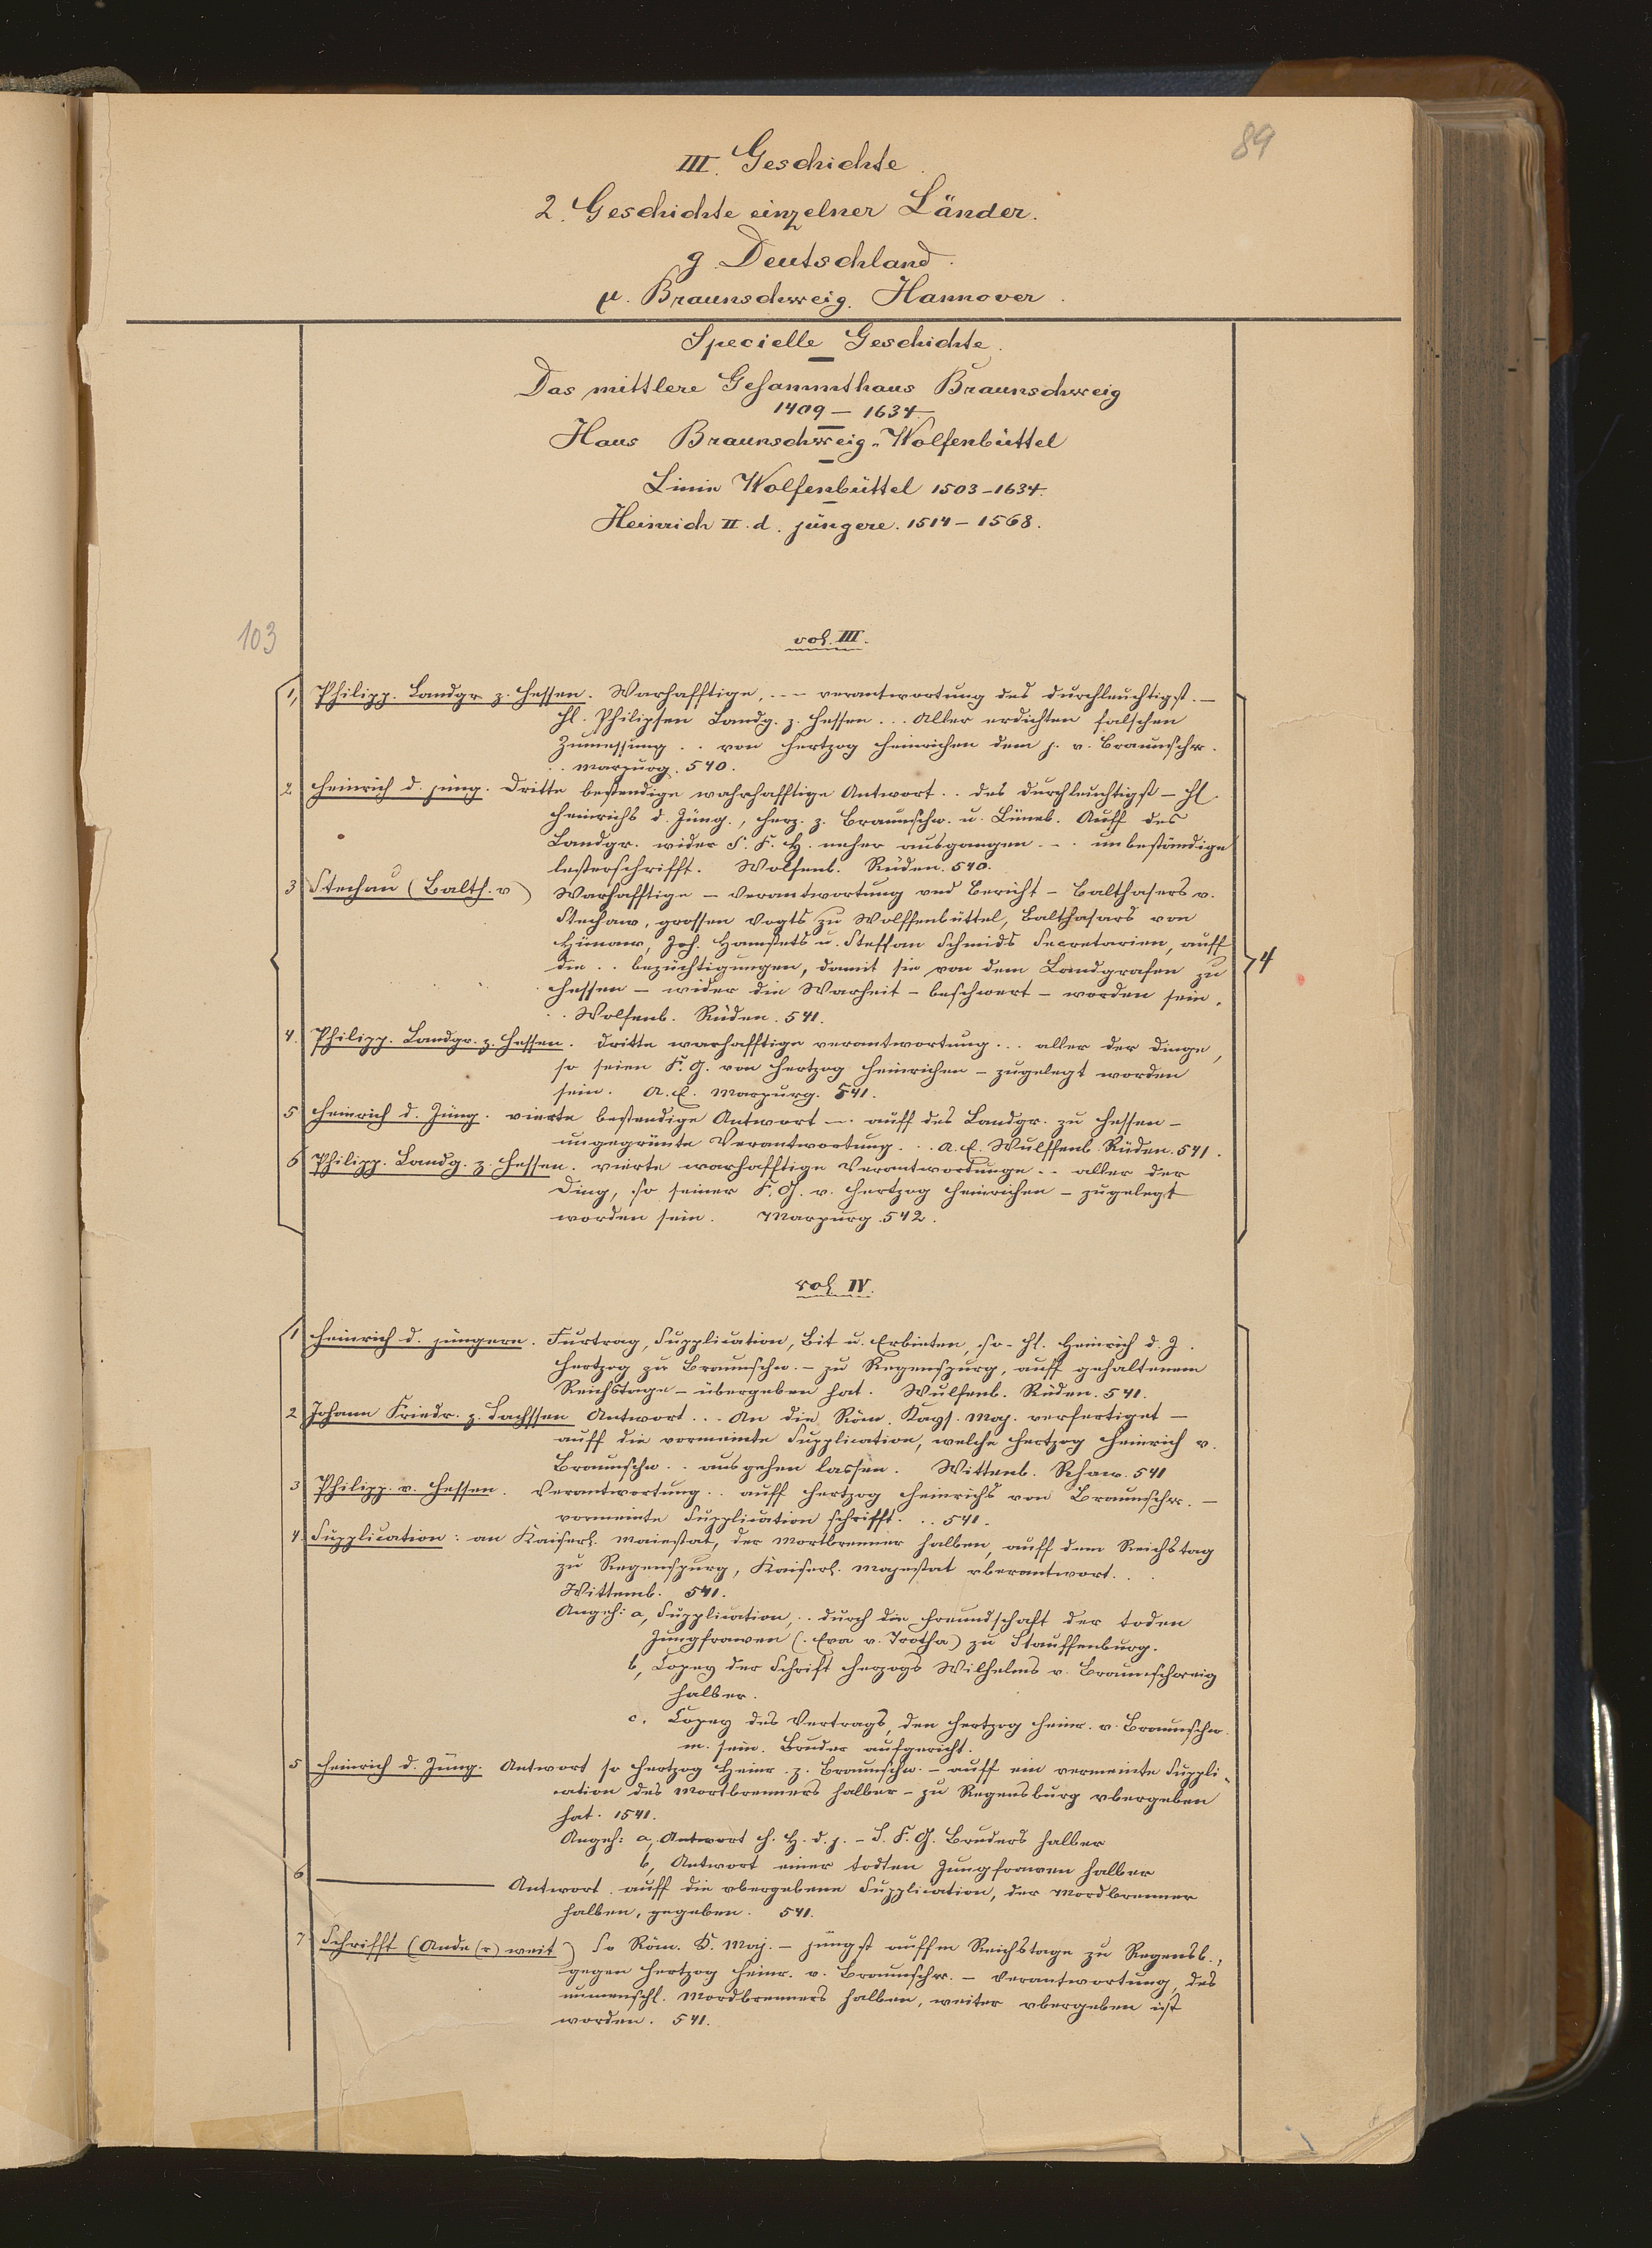 89
III. Geschichte.
2. Geschichte einzelner Länder.
g. Deutschland.
μ. Braunschweig. Hannover.
Specielle Geschichte.
Das mittlere Gesammthaus Braunschweig
1409 – 1634
Haus Braunschweig-Wolfenbüttel
Linie Wolfenbüttel 1503–1634.
Heinrich II. d. jüngere. 1514 – 1568.
103
vol. III.
1, Philipp. Landgr. z. Hessen. Warhafftige, ... verantwortung des durchleuchtigst. –
H. Philipsen Landg. z. Hessen ... Aller erdichten falschen
Zumessung .. von Hertzog Heinrichen dem j. v. Braunschw.
.. Marpurg. 540.
2 Heinrich d. jüng. Dritte bestendige wahrhafftige Antwort .. des Durchleuchtigst – H.
Heinrichs d. Jüng., Herz. z. Braunschw. u. Lüneb. Auff des
Landgr. wider S. F. H. neher ausgangen ... unbeständige
lesterschrifft. Wolfenb. Rüden. 540.
3 Stechau (Balth. v) Warhafftige – Verantwortung vnd Bericht – Balthasers v.
Stechaw, grossen Vogts zu Wolffenbüttel, Balthasars von
Joh. Hamstets u. Steffan Schmids Secretarien, auff
die .. bezüchtigungen, damit sie von dem Landgrafen zu
Hessen – wider die Warheit – beschwert – worden sein.
.. Wolfenb. Rüden. 541.
4
4. Philipp. Landgr. z. Hessen. Dritte warhafftige verantwortung ... aller der dinge,
so seien F. G. von Hertzog Heinrichen – zugelegt worden
sein. A. E. Marpurg. 541.
5 Heinrich d. Jüng. vierte bestendige Antwort –. auff des Landgr. zu Hessen –
ungegrünte Verantwortung .. A. E. Wulffenb. Rüden. 541.
6 Philipp. Landg. z Hessen. vierte warhafftige Verantwordunge .. aller der
Ding, so seiner F. G. v. Hertzog Heinrichen – zugelegt
worden sein. Marpurg. 542.
vol. IV.
1 Heinrich d. jüngern. Furtrag, Supplication, Bit u. Erbieten, so – H. Heinrich d. J.
Hertzog zu Braunschw. – zu Regenspurg, auff gehaltenem
Reichstage – übergeben hat. Wulfenb. Rüden. 541.
2 Johann Friedr. z. Sachssen Antwort ... An die Röm. Kays. Maj. verfertiget –
auff die vermeinte Supplication, welche Hertzog Heinrich v.
Braunschw. .. ausgehen lassen. Wittenb. Rhaw. 541
3 Philipp. v. Hessen. Verantwortung .. auff Hertzog Heinrichs von Braunschw. –
vormeinte Supplication schrifft. .. 541.
4. Supplication: an Kaiserl. Maiestat, der Mortbrenner halben, auff dem Reichstag
zu Regenspurg, Kaiserl. Majestat vberantwort. ..
Wittemb. 541.
Angeh: a, Supplication, .. durch die Freundschaft der toden
Jungfrawen (. Eva v. Trotha) zu Stauffenburg.
b, Copey der Schrift Herzogs Wilhelms v. Braunschweig
halber.
c. Copey des Vertrags, den Hertzog Heinr. v. Braunschw.
m. sein. Bruder aufgericht.
5 Heinrich d. Jüng. Antwort so Hertzog Heinr. z. Braunschw. – auff ein vermeinte Suppli-
cation des Mortbrenners halber – zu Regensburg vbergeben
hat. 1541.
Angeh: a, Antwort H. H. d. j. – S. F. G. Bruders halber
b, Antwort einer todten Jungfrawen halber
6 ——— Antwort. auff die vbergebene Supplication, der Mordbrenner
halben, gegeben. 541.
7 Schrifft (Ande(r) weit) So Röm. K. Maj. – jüngst auffm Reichstage zu Regensb.,
gegen Hertzog Heinr. v. Braunschw. – Verantwortung, des
unmenschl. Mordbrenners halben, weiter vbergeben ist
worden. 541.